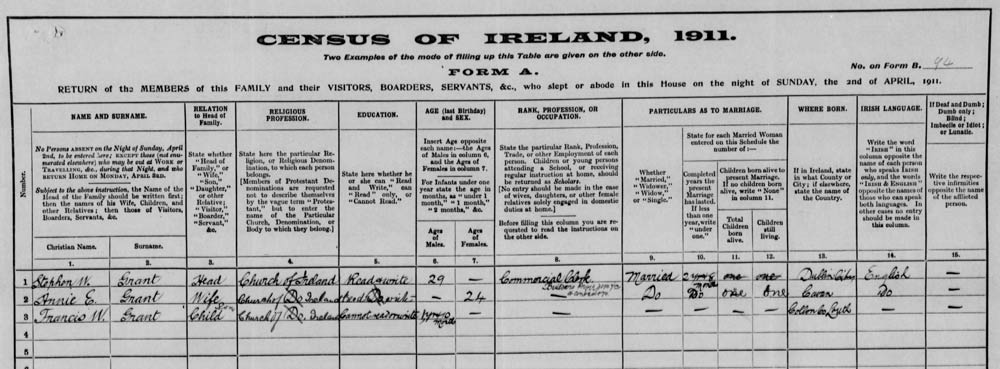 CENSUS OF IRELAND, 1911.
Two Examples of the mode of filling up this Table are given on the other side.
FORM A.
No. on Form B. 94
RETURN of the MEMBERS of this FAMILY and their VISITORS, BOARDERS, SERVANTS, &c., who slept or abode in this House on the night of SUNDAY, the 2nd of APRIL, 1911.
Number.
NAME AND SURNAME.
No Persons ABSENT on the Night of Sunday, April
2nd, to be entered here; EXCEPT those (not enu-
merated elsewhere) who may be out at WORK or
TRAVELLING, &c., during that Night, and who
RETURN HOME ON MONDAY, APRIL 3RD.
Subject to the above instruction, the Name of the
Head of the Family should be written first;
then the names of his Wife, Children, and
other Relatives; then those of Visitors,
Boarders, Servants, &c.
Christian Name.
Surname.
RELATION
to Head of
Family.
State whether
"Head of
Family," or
"Wife,"
"Son,"
"Daughter,"
or other
Relative;
"Visitor,"
"Boarder,"
"Servant,"
&c.
RELIGIOUS
PROFESSION.
State here the particular Reli-
gion, or Religious Denom-
ination, to which each person
belongs.
[Members of Protestant De-
nominations are requested
not to describe themselves
by the vague term "Protes-
tant," but to enter the
name of the Particular
Church, Denomination, or
Body to which they belong.]
EDUCATION.
State here whether he
or she can "Read
and Write," can
"Read" only, or
"Cannot Read."
AGE (last Birthday)
and SEX.
Insert Age opposite
each name:—the Ages
of Males in column 6,
and the Ages of
Females in column 7.
For Infants under one
year state the age in
months, as "under 1
month," "1 month,"
"2 months," &c.
Ages
of
Males.
Ages
of
Females.
RANK, PROFESSION, OR
OCCUPATION.
State the particular Rank, Profession,
Trade, or other Employment of each
person. Children or young persons
attending a School, or receiving
regular instruction at home, should
be returned as Scholars.
[No entry should be made in the case
of wives, daughters, or other female
relatives solely engaged in domestic
duties at home.]
Before filling this column you are re-
quested to read the instructions on
the other side.
PARTICULARS AS TO MARRIAGE.
Whether
"Married,"
"Widower,"
"Widow,"
or "Single."
State for each Married Woman
entered on this Schedule the
number of :—
Completed
years the
present
Marriage
has lasted.
If less
than one
year, write
"under
one."
Children born alive to
present Marriage. If
no children born
alive, write "None"
in column 11.
Total
Children
born
alive.
Children
still
living.
WHERE BORN.
If in Ireland, state
in what County or
City; if elsewhere,
state the name of
the Country.
IRISH LANGUAGE.
Write the word
"IRISH" in this
column opposite the
name of each person
who speaks IRISH
only, and the words
"IRISH & ENGLISH"
opposite the names of
those who can speak
both languages. In
other cases no entry
should be made in
this column.
If Deaf and Dumb;
Dumb only;
Blind;
Imbecile or Idiot;
or Lunatic.
Write the respec-
tive infirmities
opposite the name
of the afflicted
person.
1. 2. 3. 4. 5. 6. 7. 8. 9. 10. 11. 12. 13. 14. 15.
1 Stephen W. Grant Head Church of Ireland Read & write 29 — Commercial Clerk Married 2 yrs one one Dublin City English —
2 Annie E. Grant Wife Church of Do Ireland Read Do write — 24 — Do Do one One Cavan Do —
3 Francis W. Grant Child Son Church of Do Ireland Cannot read or write — — — — — — Collon Co. Louth — —
4
5